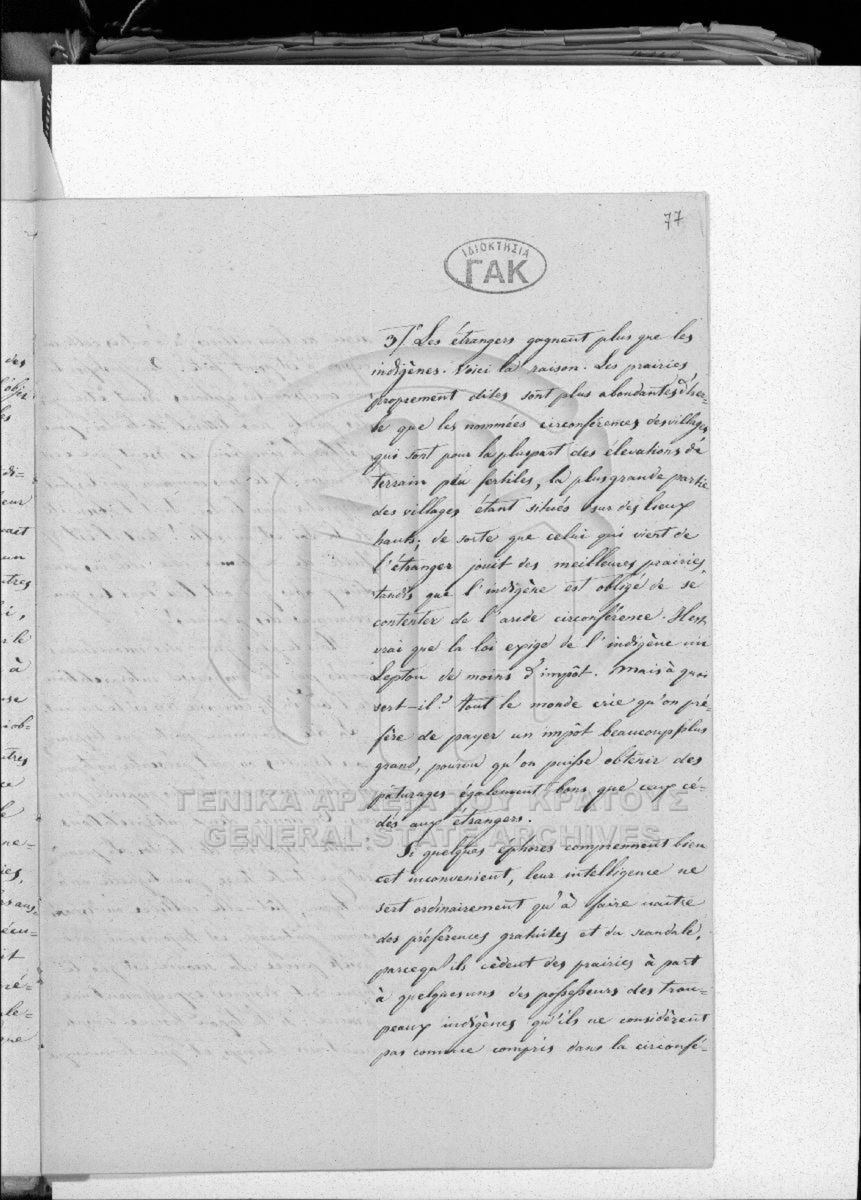 77
ΙΔΙΟΚΤΗΣΙΑ
ΓΑΚ
3/º Les étrangers gagnent plus que les
indigènes. Voici la raison. Les prairies,
proprement dites sont plus abondantes d'her-
be que les nommées circonférences des villages,
qui sont pour la pluspart des elevations de
terrain peu fertiles, la plus grande partie
des villages étant situés sur des lieux
hauts; de sorte que celui qui vient de
l'étranger jouit des meilleures prairies,
tandis que l'indigène est obligé de se
contenter de l'aride circonférence. Il est
vrai que la loi exige de l'indigène un
Lepton de moins d'impôt. Mais à quoi
sert-il? tout le monde crie qu'on pré-
fère de payer un impôt beaucoup plus
grand, pourvu qu'on puisse obtenir des
pâturages également bons que ceux cé-
dés aux étrangers.
ΓΕΝΙΚΑ ΑΡΧΕΙΑ ΤΟΥ ΚΡΑΤΟΥΣ
GENERAL STATE ARCHIVES
Si quelques ephores comprennent bien
cet inconvenient, leur intelligence ne
sert ordinairement qu'à faire naître
des préférences gratuites et du scandale,
parcequ'ils cèdent des prairies à part
à quelquesuns des possesseurs des trou-
peaux indigènes qu'ils ne considèrent
pas comme compris dans la circonfé-